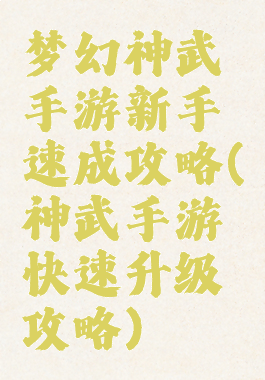 梦幻神武
手游新手
速成攻略(
神武手游
快速升级
攻略)